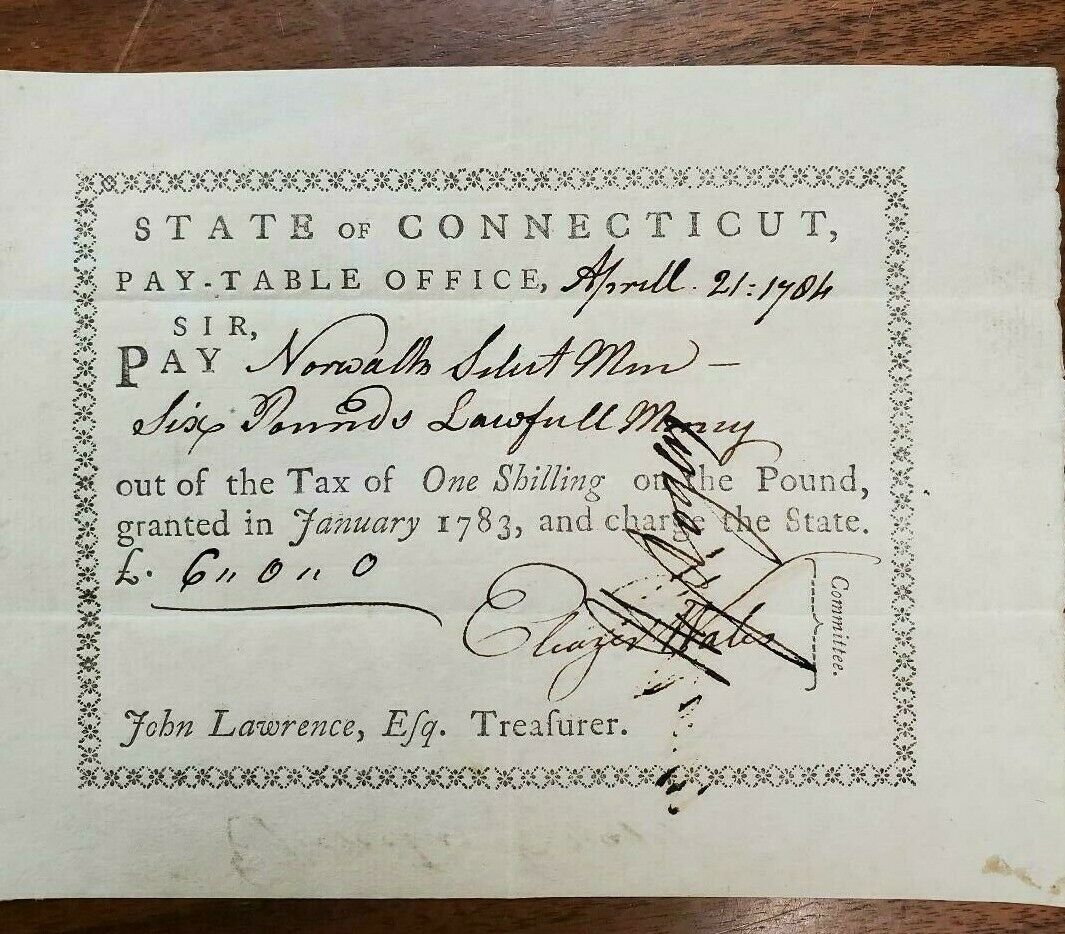 STATE OF CONNECTICUT,
PAY-TABLE OFFICE, Aprill. 21: 1784
SIR,
PAY Norwalk Select Men –
Six Pounds Lawfull Money
out of the Tax of One Shilling on the Pound,
granted in January 1783, and charge the State.
£. 6 „ 0 „ 0
Eleazer Wales
Committee.
John Lawrence, Eſq. Treaſurer.